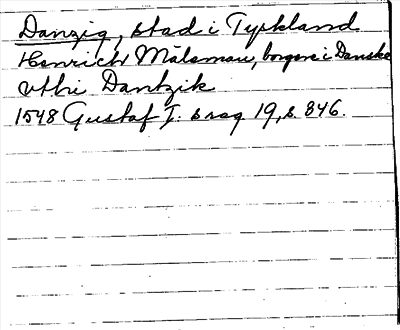 Danzig, stad i Tyskland
Henrich Målsmau, borgare i Danske
vthi Dantzik
1548 Gustaf I. s reg 19, s. 346.